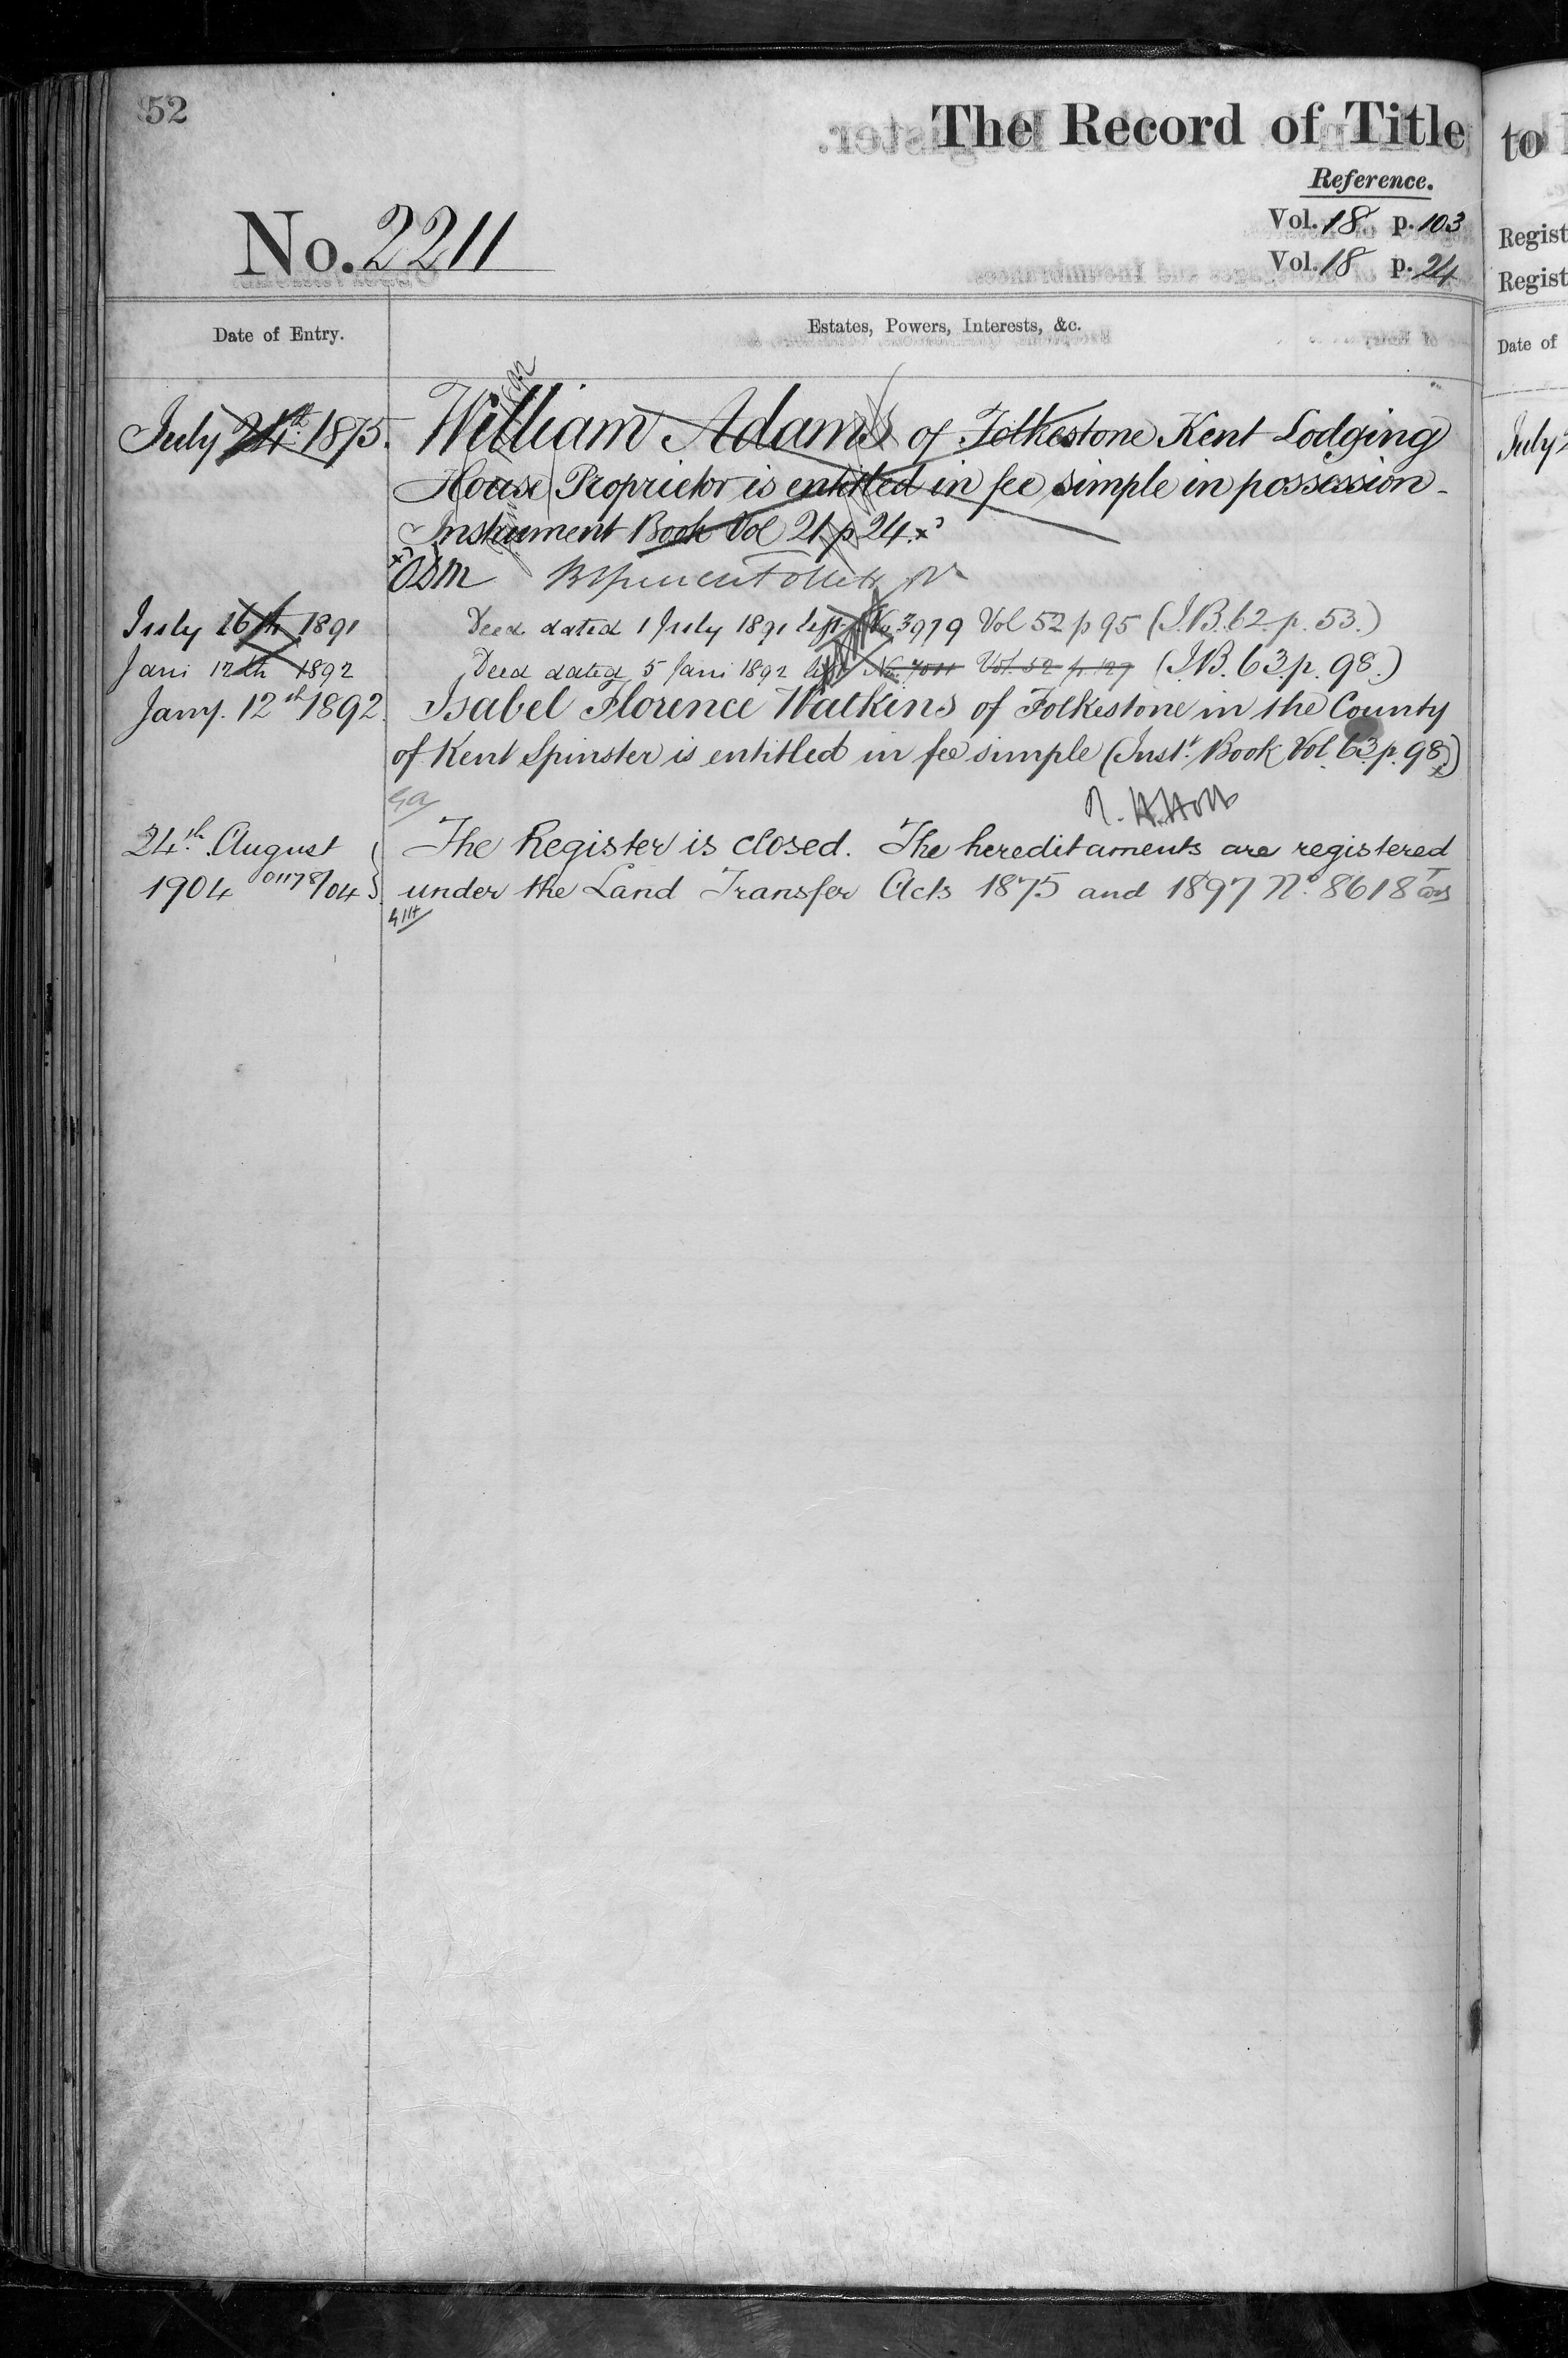 52
The Record of Title
to
Reference.
Vol. 18 p. 103
Vol. 18 p. 24
No. 2211
Regist
Regist
Date of Entry.
Estates, Powers, Interests, &c.
Date of
July 21st 1875. William Adams of Folkestone Kent Lodging
House Proprietor is entitled in fee simple in possession -
Instrument Book Vol 21 p 24 x
July
July 16th 1891 Deed dated 1 July 1891 left No 3979 Vol 52 p 95 (I.B. 62. p. 53.)
Jani 12th 1892 Deed dated 5 Jani 1892 left Vol. 52 p. 127 (I.B. 63. p. 98.)
Jany. 12th 1892. Isabel Florence Watkins of Folkestone in the County
of Kent Spinster is entitled in fee simple (Inst. Book Vol. 63 p. 98.)
24th August The Register is closed. The hereditaments are registered
1904 01178/04 under the Land Transfer Acts 1875 and 1897 No. 8618